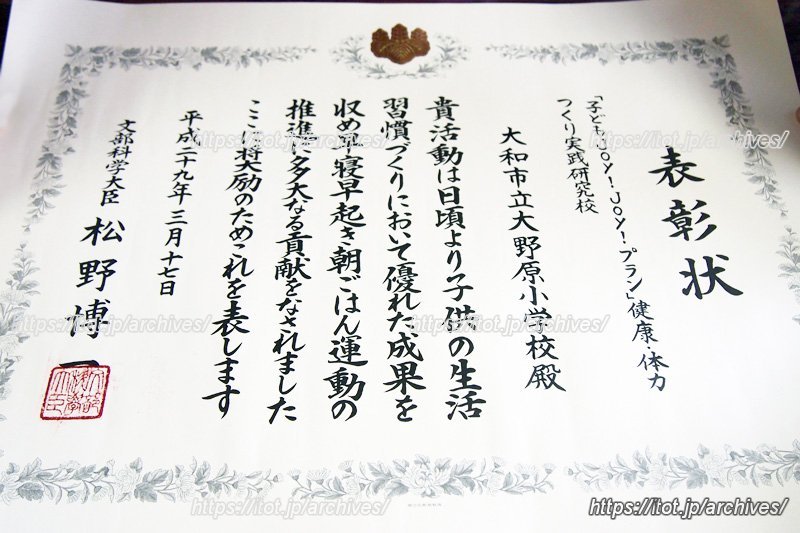 表彰状
「子どもJOY!JOY!プラン」健康・体力
つくり実践研究校
大和市立大野原小学校殿
貴活動は日頃より子供の生活
習慣づくりにおいて優れた成果を
収め早寝早起き朝ごはん運動の
推進に多大なる貢献をなされました
ここに将大励のためこれを表します
平成二十九年三月十七日
文部科学大臣 松野博一
https://itot.jp/archives/
https://itot.jp/archives/
https://itot.jp/archives/
https://itot.jp/archives/
https://itot.jp/archives/
https://itot.jp/archives/
https://itot.jp/archives/
https://itot.jp/archives/
https://itot.jp/archives/